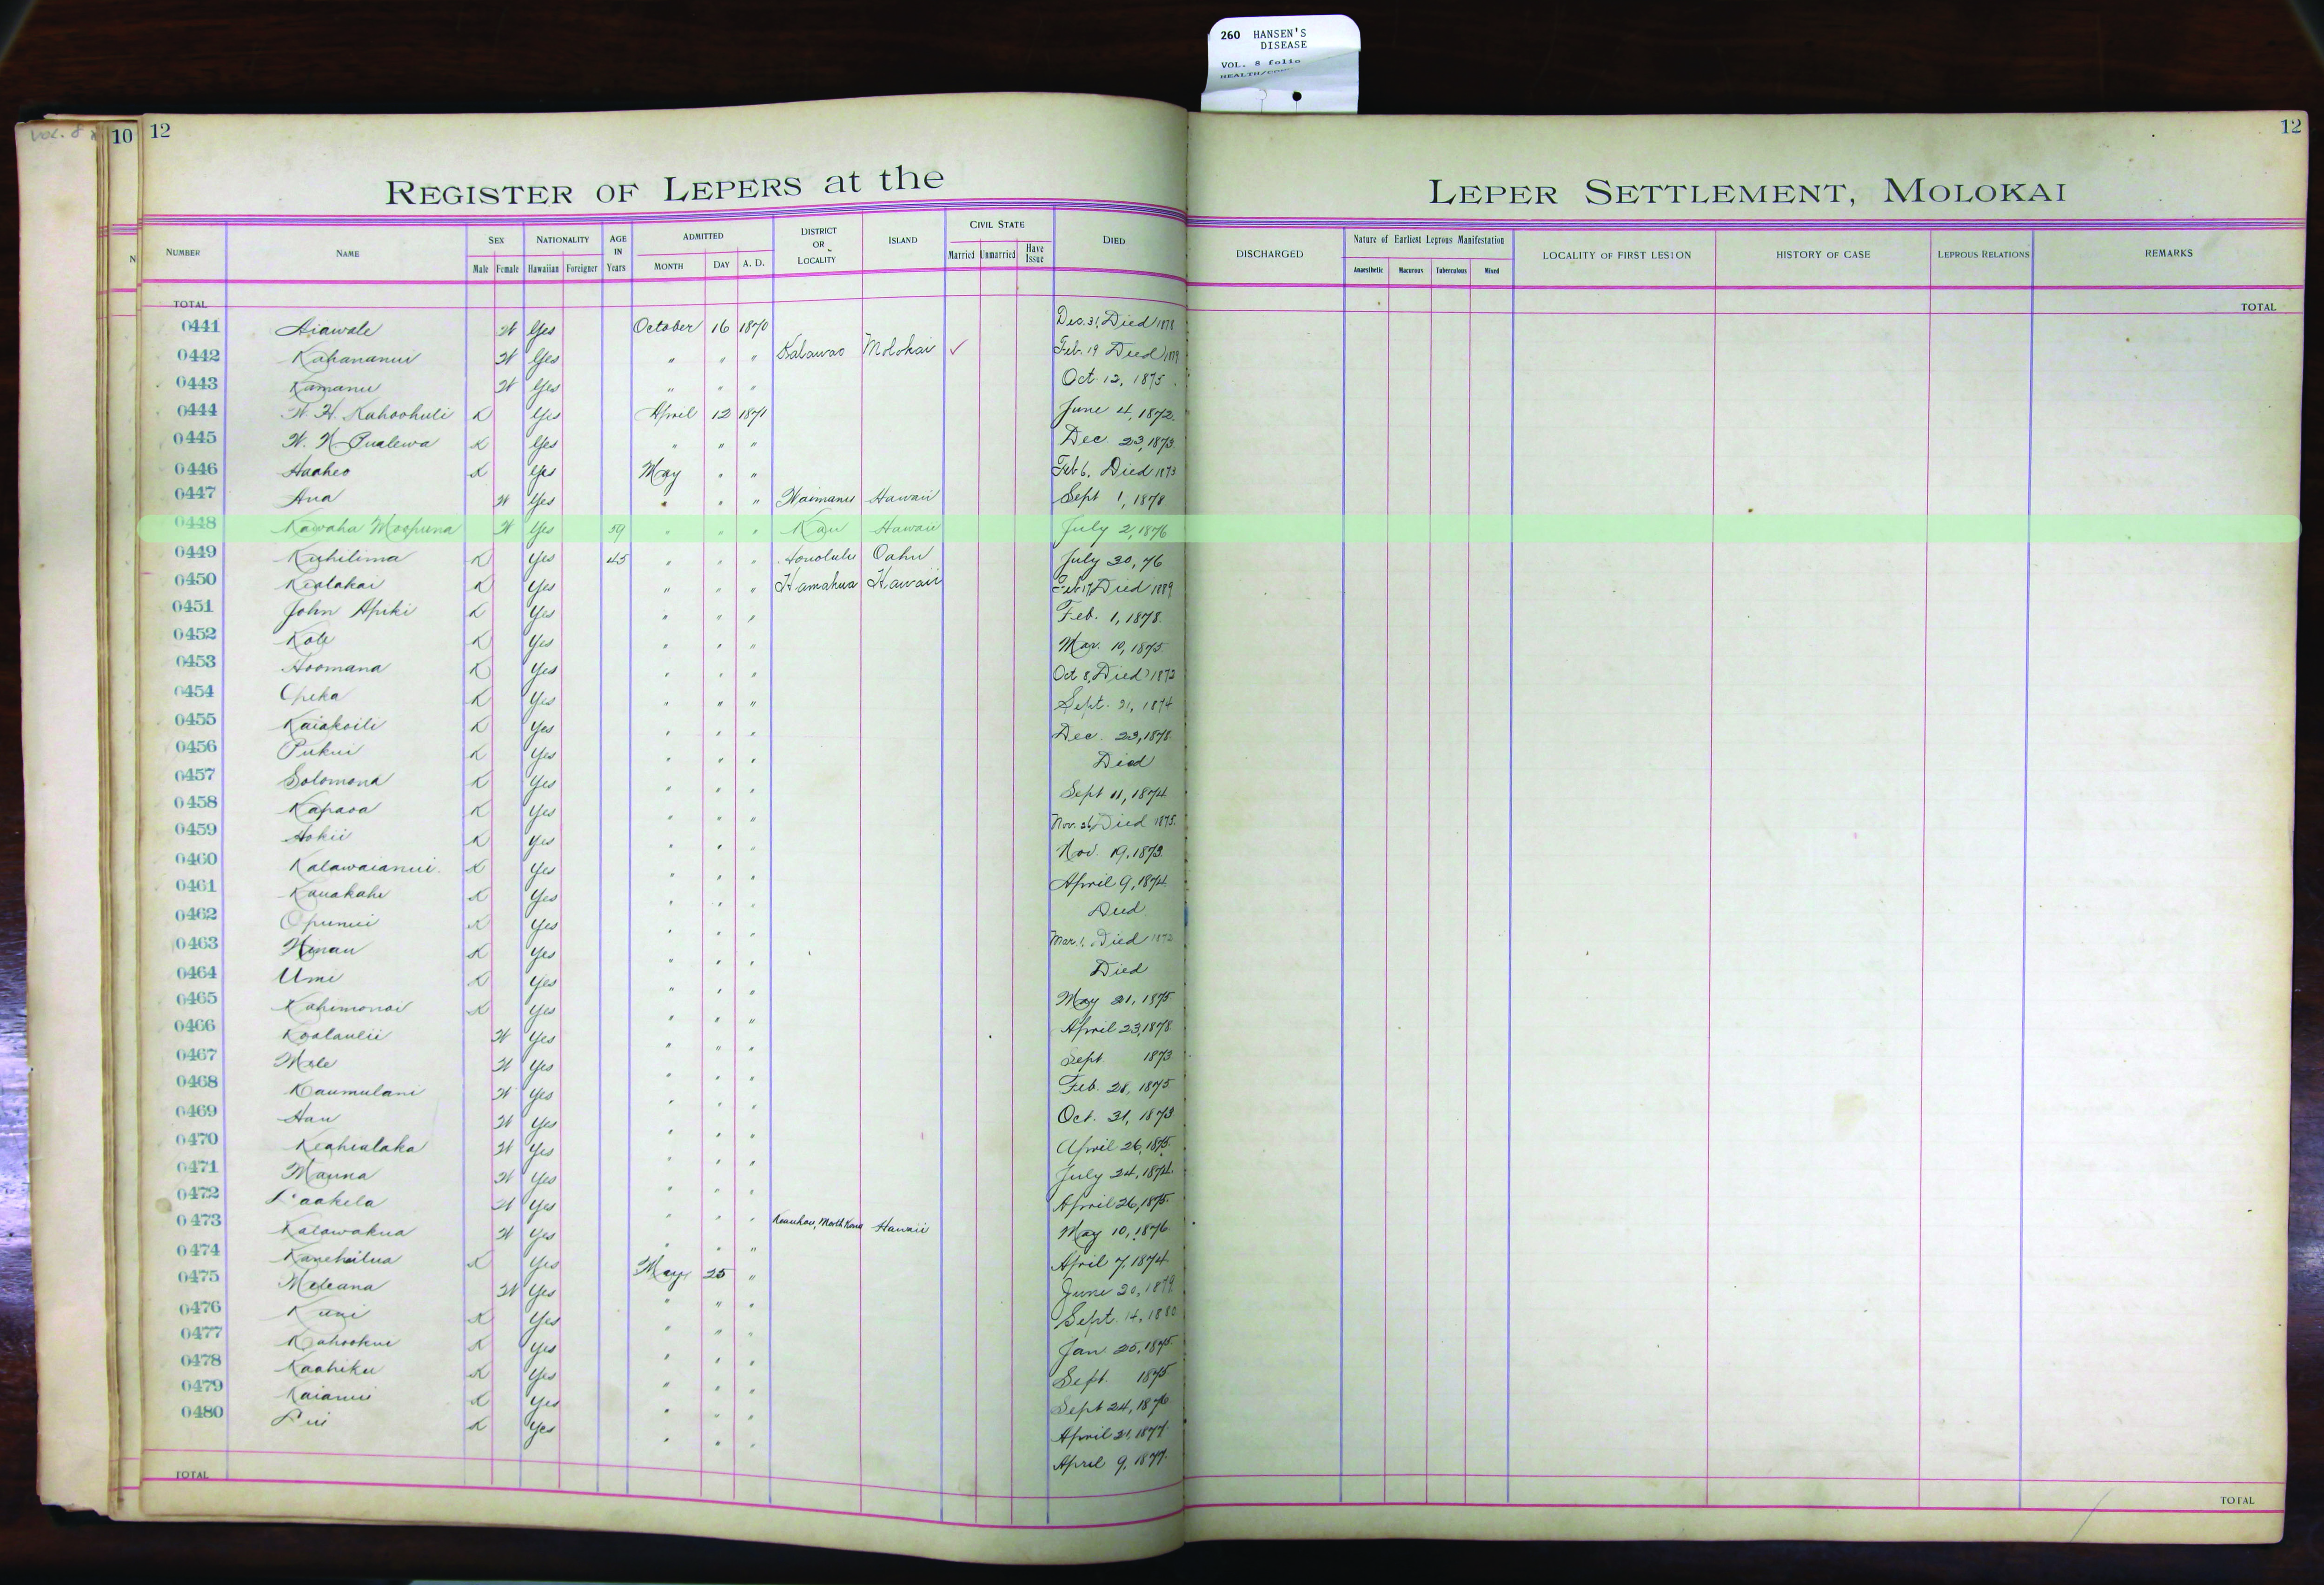 260 HANSEN'S
DISEASE
VOL. 8 folio
10 12
12
REGISTER OF LEPERS at the LEPER SETTLEMENT, MOLOKAI
NUMBER NAME SEX NATIONALITY AGE IN Years ADMITTED DISTRICT OR LOCALITY ISLAND CIVIL STATE DIED DISCHARGED Nature of Earliest Leprous Manifestation LOCALITY OF FIRST LESION HISTORY OF CASE LEPROUS RELATIONS REMARKS
Male Female Hawaiian Foreigner MONTH DAY A. D. Married Unmarried Have Issue Anaesthetic Macurous Tuberculous Mixed
TOTAL TOTAL
0441 W Yes October 16 1870 Dec. 31, Died 1878
0442 Kahananui W Yes " " " Kalawao Molokai ✓ Feb. 19 Died
0443 Kamanu W Yes " " " Oct. 12, 1875
0444 W. H. Kahoohuli K Yes April 12 1871 June 4, 1872.
0445 W. N. Pualewa K Yes " " " Dec. 23, 1873.
0446 Haaheo K Yes May " " Feb 6, Died 1873
0447 Ana W Yes " " " Waimanu Hawaii Sept 1, 1878
0448 Kawaha Moopuna W Yes 59 " " " Kau Hawaii July 2, 1876
0449 Kuhilima K Yes 45 " " " Honolulu Oahu July 30, 76
0450 Kealakai K Yes " " " Hamakua Hawaii Feb 17, Died 1889
0451 John Apiki K Yes " " " Feb. 1, 1878.
0452 Kole K Yes " " " Mar. 10, 1875.
0453 Hoomana K Yes " " " Oct 8, Died 1872
0454 Opeka K Yes " " " Sept. 21, 1874
0455 Kaiakoili K Yes " " " Dec. 23, 1878.
0456 Pukui K Yes " " " Died
0457 Solomona K Yes " " " Sept 11, 1874
0458 Kapaoa K Yes " " " Nov. 26, Died 1875.
0459 Hokii K Yes " " " Nov. 19, 1873.
0460 Kalawaianui K Yes " " " April 9, 1874.
0461 Kauakahi K Yes " " " Died
0462 Opunui K Yes " " " Mar. 1, Died
0463 Hinau K Yes " " " Died
0464 Umi K Yes " " " May 21, 1875
0465 Kahimonoi K Yes " " " April 23, 1878.
0466 Koolaulii W Yes " " " Sept 1873
0467 Mele W Yes " " " Feb. 28, 1875
0468 Kaumulani W Yes " " " Oct. 31, 1873
0469 Hau W Yes " " " April 26, 1875.
0470 Keahialaka W Yes " " " July 24, 1874.
0471 Mauna W Yes " " " April 26, 1875.
0472 Laakela W Yes " " " Keauhou, North Kona Hawaii May 10, 1876
0473 Kalawakua W Yes " " " April 7, 1874
0474 Kanehailua K Yes May 25 " June 20, 1879
0475 Meleana W Yes " " " Sept. 14, 1880
0476 Kuni K Yes " " " Jan 25, 1875
0477 Kahookui K Yes " " " Sept. 1875
0478 Kaahiku K Yes " " " Sept 24, 1876
0479 Kaianui K Yes " " " April 21, 1877
0480 Lui K Yes " " " April 9, 1877.
TOTAL TOTAL